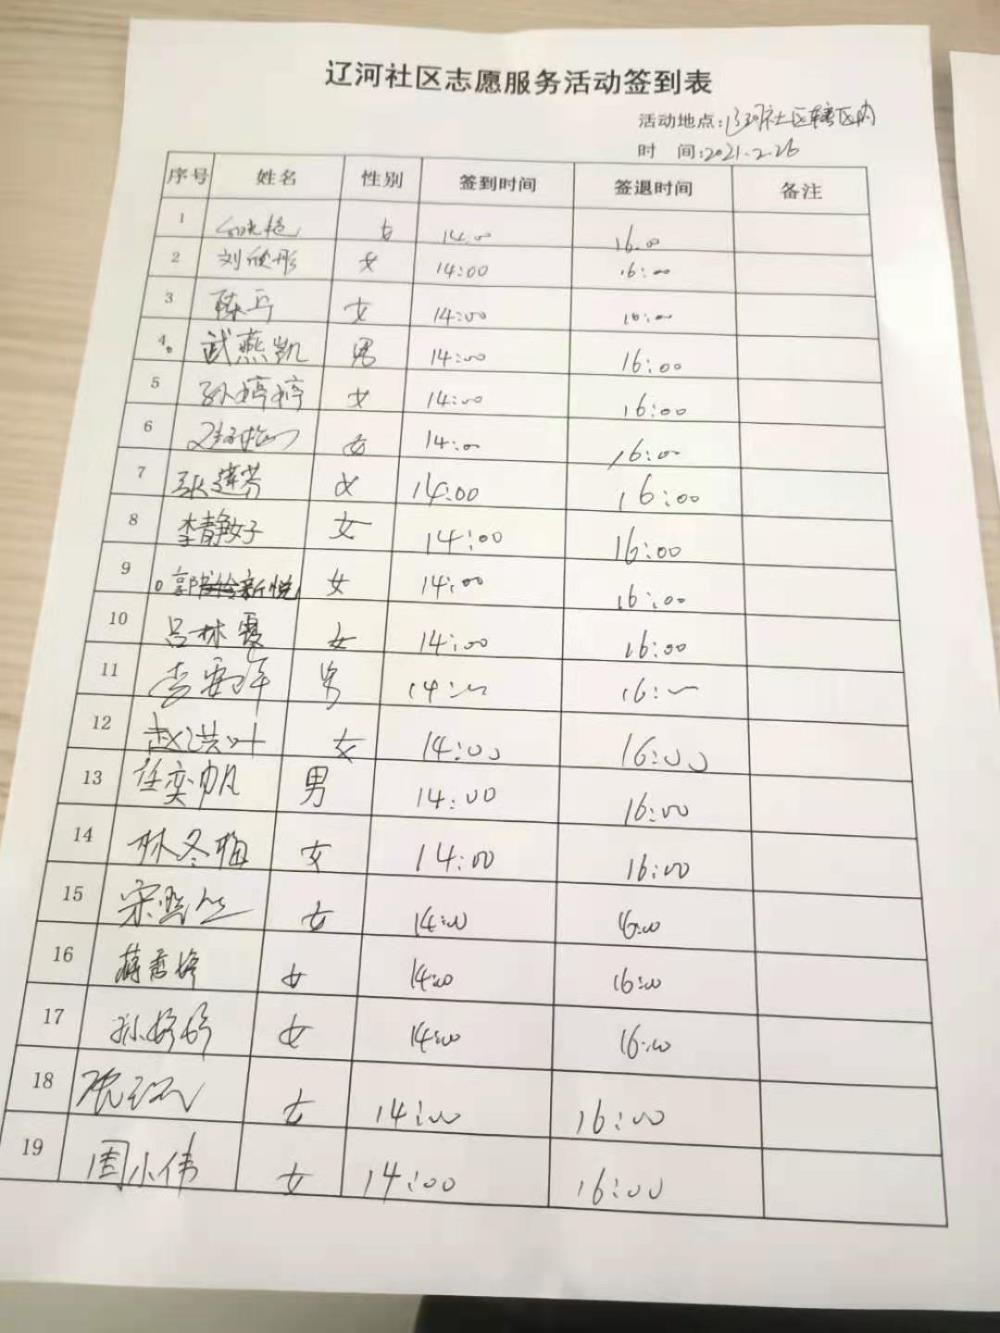 辽河社区志愿服务活动签到表
活动地点:辽河社区辖区内
时 间:2021.2.26
序号 姓名 性别 签到时间 签退时间 备注
1 女 14:00 16:00
2 刘欣彤 女 14:00 16:00
3 女 14:00 16:00
4 武燕凯 男 14:00 16:00
5 孙婷婷 女 14:00 16:00
6 女 14:00 16:00
7 张莲芳 女 14:00 16:00
8 李静好子 女 14:00 16:00
9 郭 新悦 女 14:00 16:00
10 吕林霞 女 14:00 16:00
11 男 14:00 16:00
12 赵洪叶 女 14:00 16:00
13 任奕帆 男 14:00 16:00
14 林冬梅 女 14:00 16:00
15 宋 女 14:00 16:00
16 蒋秀婷 女 14:00 16:00
17 孙婷婷 女 14:00 16:00
18 女 14:00 16:00
19 周小伟 女 14:00 16:00